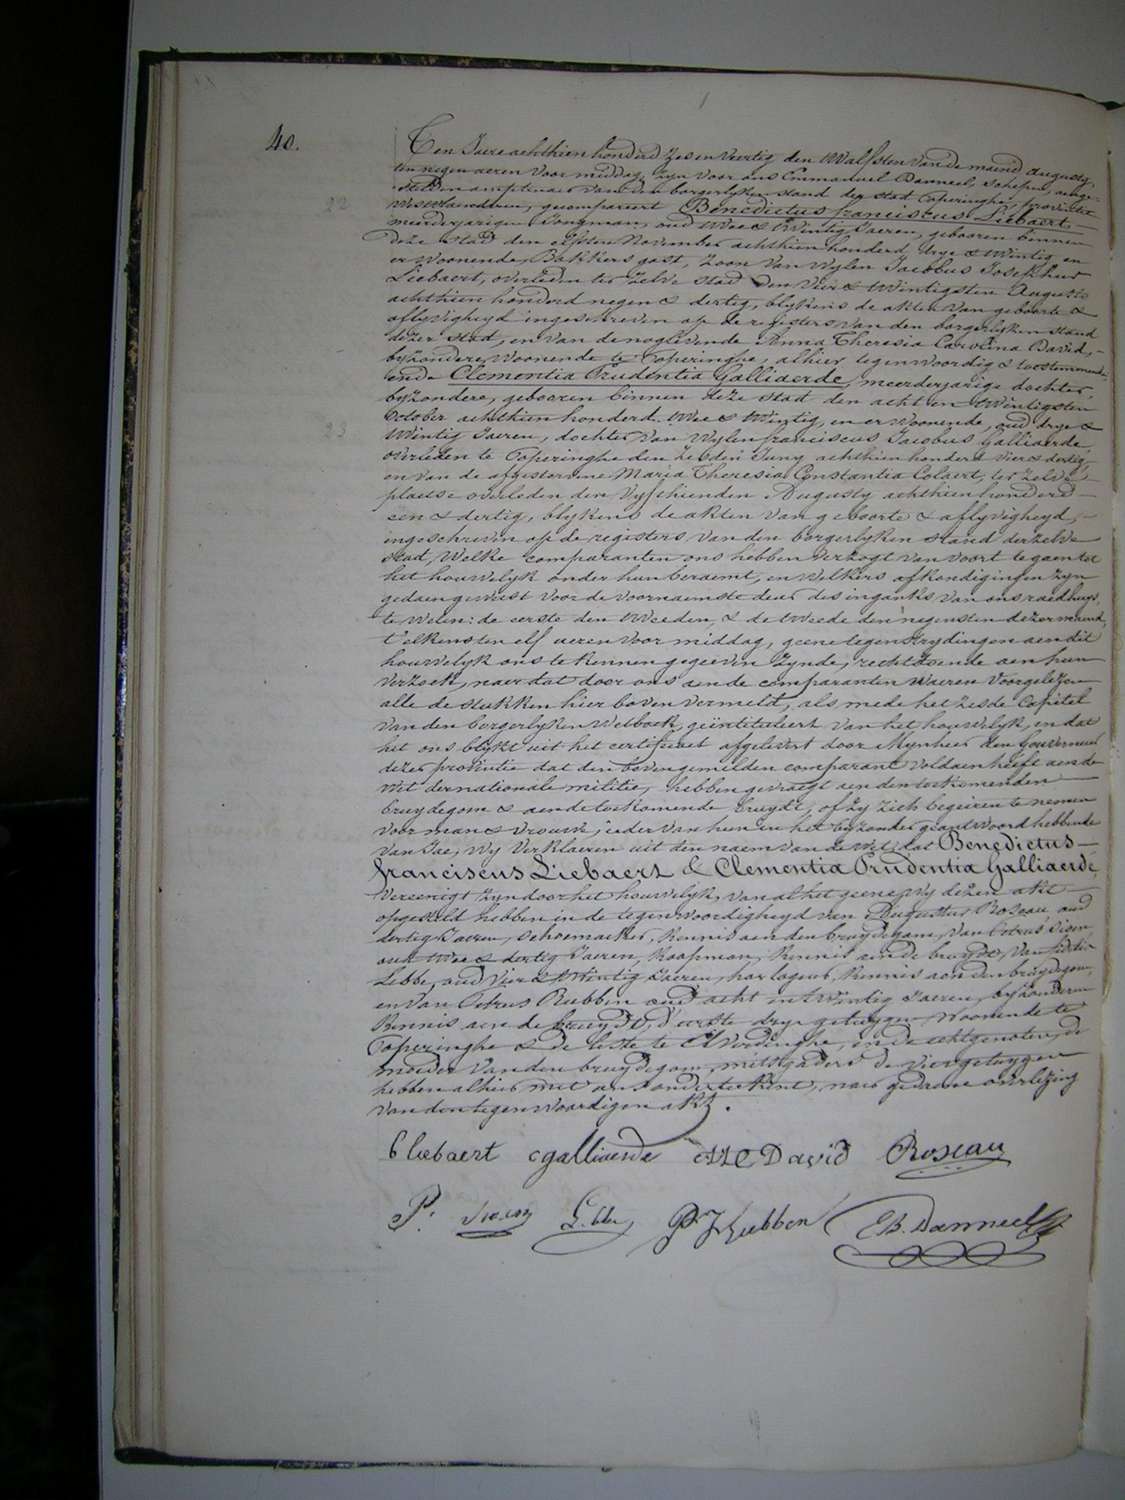 40.
Ten Jaere achthien honderd zes en veertig den twalfsten van de maend augusty,
ten negen ueren voor middag, zyn voor ons Emmanuel Danneel, schepen, ambtenaer van den borgerlyken stand der stad Poperinghe, provintie
Westvlaenderen, gecompareert Benedictus franciscus Liebaert,
22
minderjarigen Jongman, oud twee & twintig Jaeren, gebooren binnen
deze stad den elfsten November achthien honderd drye & twintig en
er woonende, Bakkers gast, zoon van wylen Jacobus Josephus
Liebaert, overleden ter zelve stad den vier & twintigsten Augusty
achthien honderd negen & dertig, blykens de akten van geboorte &
aflyvigheyd ingeschreven op de registers van den borgerlyken stand
dezer stad, en van de noglevende Anna Theresia Carolina David,
byzondere, woonende te Poperinghe, alhier tegenwoordig & toestemmende
ende Clementia Prudentia Galliaerde, meerderjarige dochter,
byzondere, gebooren binnen deze stad den acht en twintigsten
October achthien honderd twee & twintig, en er woonende, oud drye &
23
twintig Jaeren, dochter van wylen franciscus Jacobus Galliaerde,
overleden te Poperinghe den Juny achthien honderd vier & dertig,
en van de afgestorvene Maria Theresia Constantia Colaert, ter zelve
plaetse overleden den vyfthienden Augusty achthien honderd
een & dertig, blykens de akten van geboorte & aflyvigheyd,
ingeschreven op de registers van den borgerlyken stand derzelve
stad, Welke comparanten ons hebben verzogt van voort te gaen tot
het houwelyk onder hun beraemt, en welkers afkondigingen zyn
gedaen geweest voor de voornaemste deur des ingangs van ons raedhuys,
te weten: de eerste den tweeden, & de tweede den negensten dezer maend,
t'elkensten elf ueren voor middag, geene tegenstrydingen aen dit
houwelyk ons te kennen gegeeven zynde, rechtdoende aen hun
verzoek, naer dat door ons aen de comparanten waeren voorgelezen
alle de stukken hier boven vermeld, als mede het zesde Capitel
van den borgerlyken Wetboek, geïntituleert van het houwelyk, en dat
het ons blykt uit het certificaet afgelevert door Mynheer den Gouverneur
dezer provintie dat den bovengemelden comparant voldaen heeft aen de
wet der nationale militie, hebben gevraegt aen den toekomenden
bruydegom & aen de toekomende bruydt, of zy zich begeiren te nemen
voor man & vrouw, ieder van hun in het byzonder geantwoord hebbende
van Jae; wy verklaeren uit den naem van de wet, dat Benedictus
franciscus Liebaert & Clementia Prudentia Galliaerde,
Vereenigt zyn door het houwelyk, van al het geene wy dezen akt
opgesteld hebben in de tegenwoordigheyd van Augustus Roseau oud
dertig Jaeren, schoemaeker, kennis aen den bruydegom, van Petrus
oud twee & dertig Jaeren, koopman, kennis aen de bruydt, van
Lebbe, oud vier & twintig Jaeren, horlogeur, kennis aen den bruydegom,
en van Petrus Rubben oud acht en twintig Jaeren, byzonderen
kennis aen de bruydt, d'eerste drye getuygen woonende te
Poperinghe & de leste te Elverdinghe, en de echtgenoten, de
moeder van den bruydegom, mitsgaders de vier getuygen
hebben alhier met ons onderteekent, naer gedaene overlezing
van den tegenwoordigen akt.
B Liebaert cgalliaerde ATC David Roseau
P. Lebbe Rubben EB. Danneel